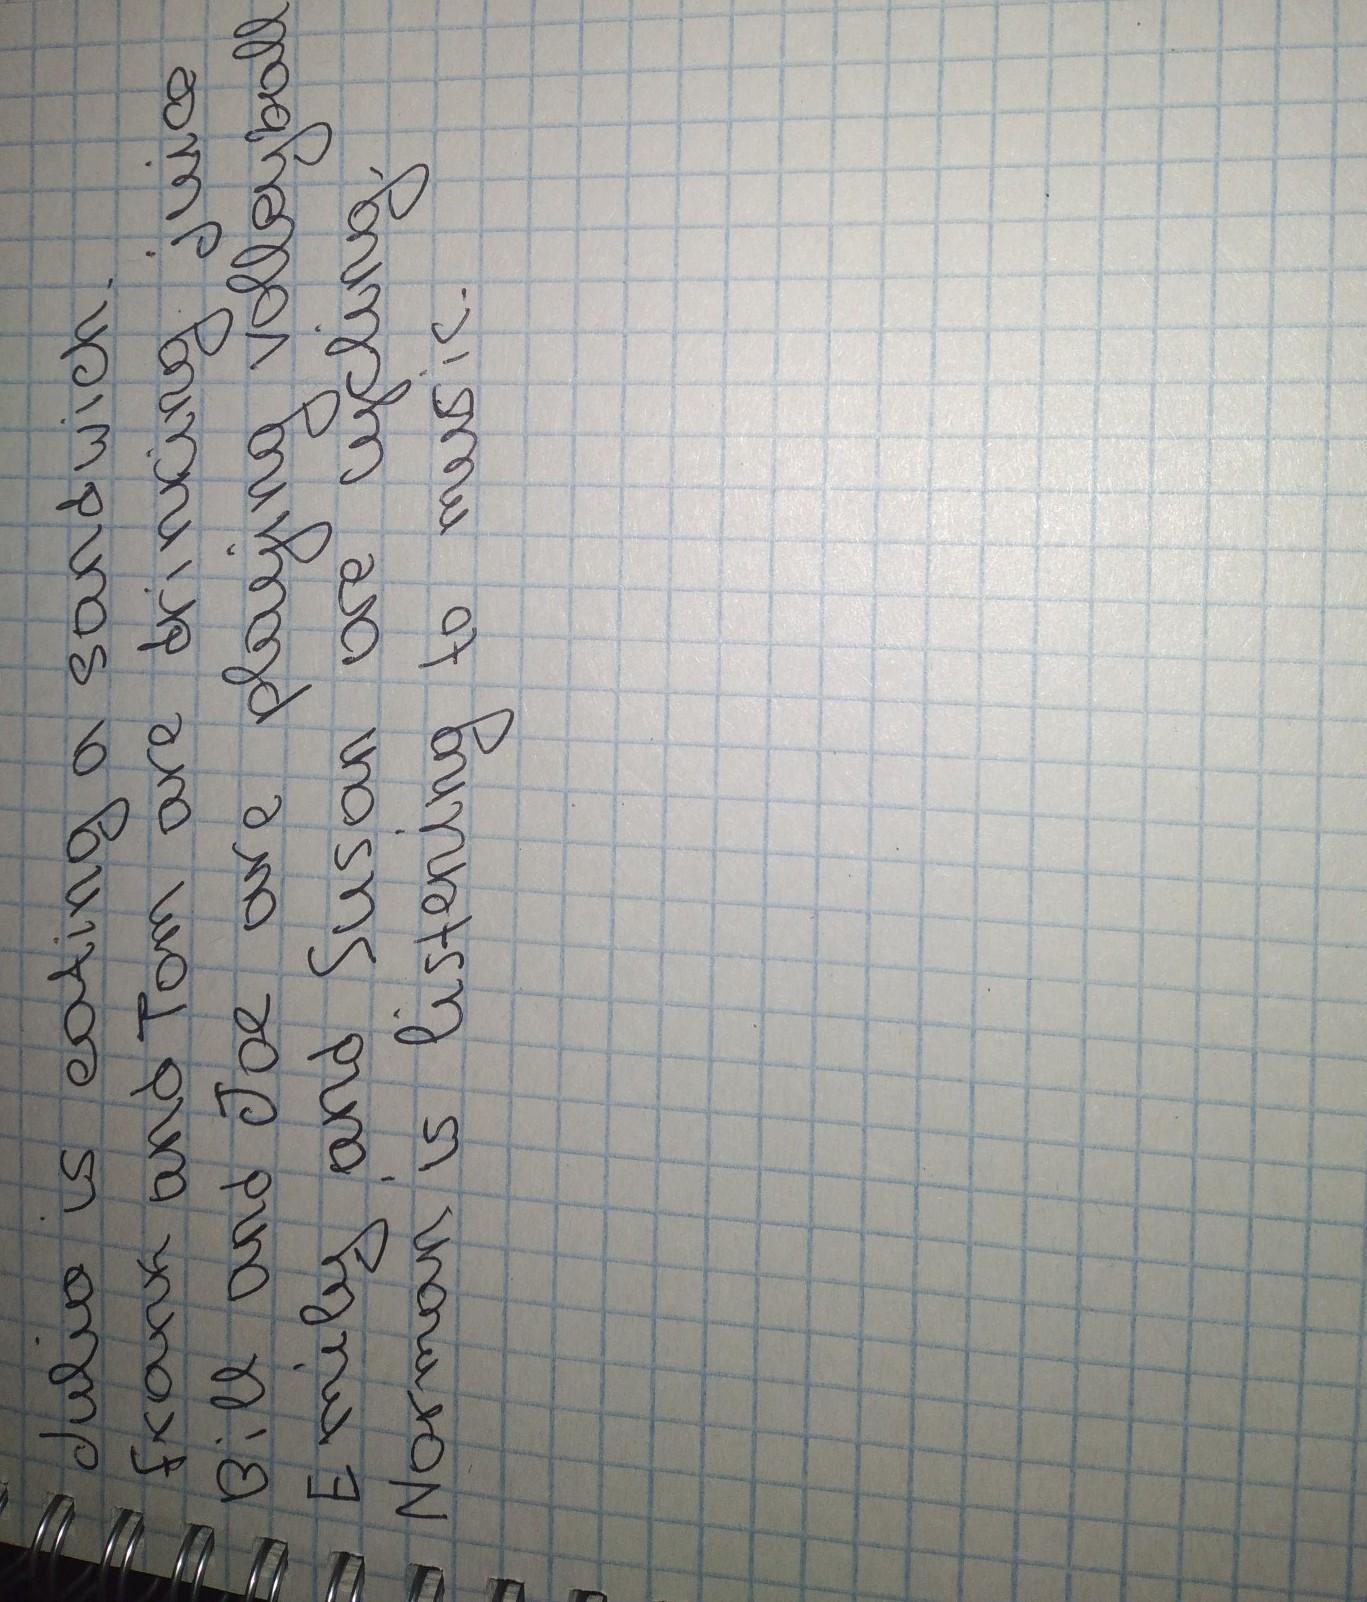 Julia is eating a sandwich.
Frank and Tom are drinking juice
Bill and Joe are playing volleyball
Emily and Susan are cycling.
Norman is listening to music.